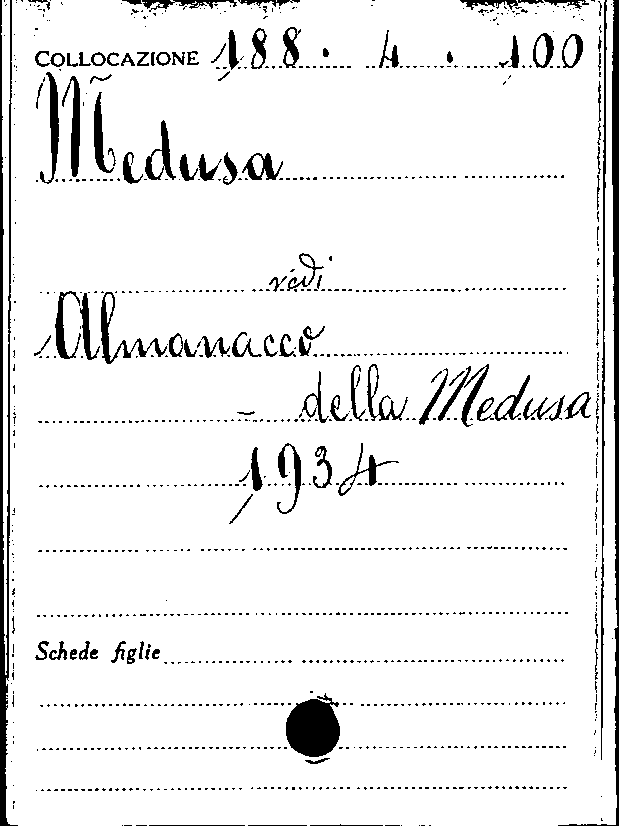 COLLOCAZIONE 188. 4. 100
Medusa
vedi
Almanacco
- della Medusa
1934
Schede figlie